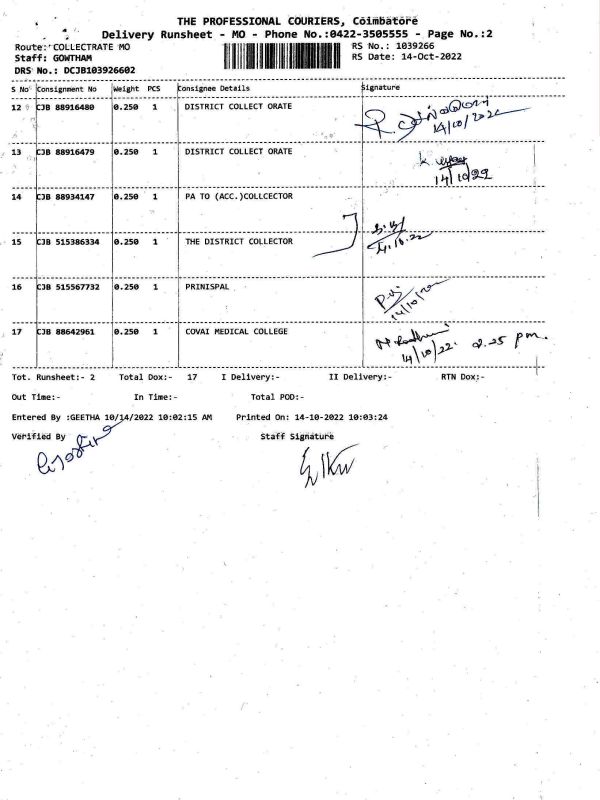 THE PROFESSIONAL COURIERS, Coimbatore
Delivery Runsheet - MO - Phone No.:0422-3505555 - Page No.:2
Route: COLLECTRATE MO RS No.: 1039266
Staff: GOWTHAM RS Date: 14-Oct-2022
DRS No.: DCJB103926602
S No Consignment No Weight PCS Consignee Details Signature
12 CJB 88916480 0.250 1 DISTRICT COLLECT ORATE
14/10/2022
13 CJB 88916479 0.250 1 DISTRICT COLLECT ORATE
14/10/22
14 CJB 88934147 0.250 1 PA TO (ACC.)COLLCECTOR
15 CJB 515386334 0.250 1 THE DISTRICT COLLECTOR
14.10.22
16 CJB 515567732 0.250 1 PRINISPAL
17 CJB 88642961 0.250 1 COVAI MEDICAL COLLEGE
14/10/22. pm.
Tot. Runsheet:- 2 Total Dox:- 17 I Delivery:- II Delivery:- RTN Dox:-
Out Time:- In Time:- Total POD:-
Entered By :GEETHA 10/14/2022 10:02:15 AM Printed On: 14-10-2022 10:03:24
Verified By Staff Signature